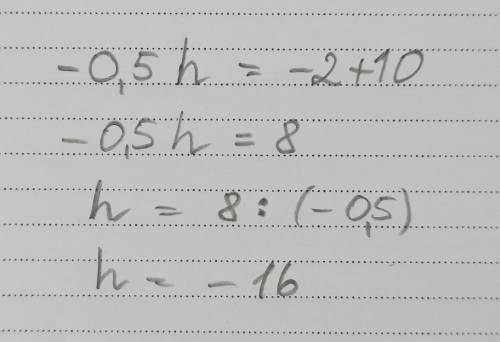 -0,5h = -2+10
-0,5h = 8
h = 8 : (-0,5)
h = -16